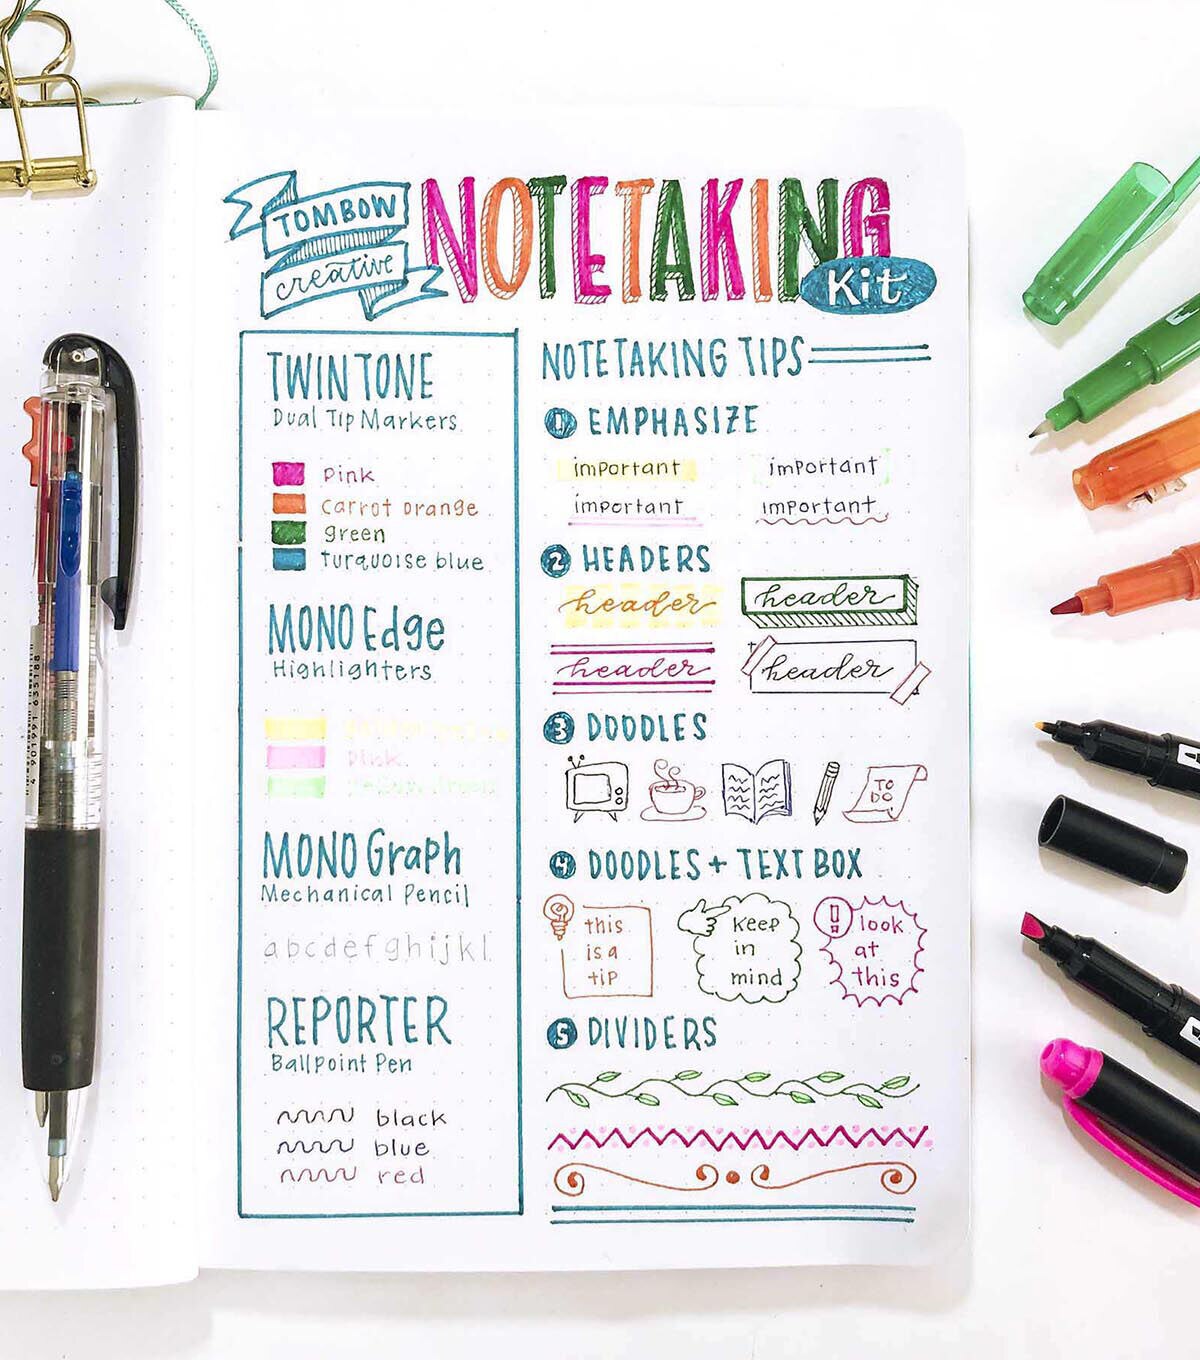 TOMBOW
creative
NOTETAKING
Kit
TWINTONE
Dual Tip Markers
Pink
carrot orange
green
Turquoise blue
MONO Edge
Highlighters
Pink
Yellow Green
MONO Graph
Mechanical Pencil
abcdefghijkl
REPORTER
Ballpoint Pen
black
blue
red
NOTETAKING TIPS
1 EMPHASIZE
important important
important important
2 HEADERS
header header
header header
3 DOODLES
TO
DO
4 DOODLES + TEXT BOX
this
is a
tip
keep
in
mind
! look
at
this
5 DIVIDERS
4 901991 635188